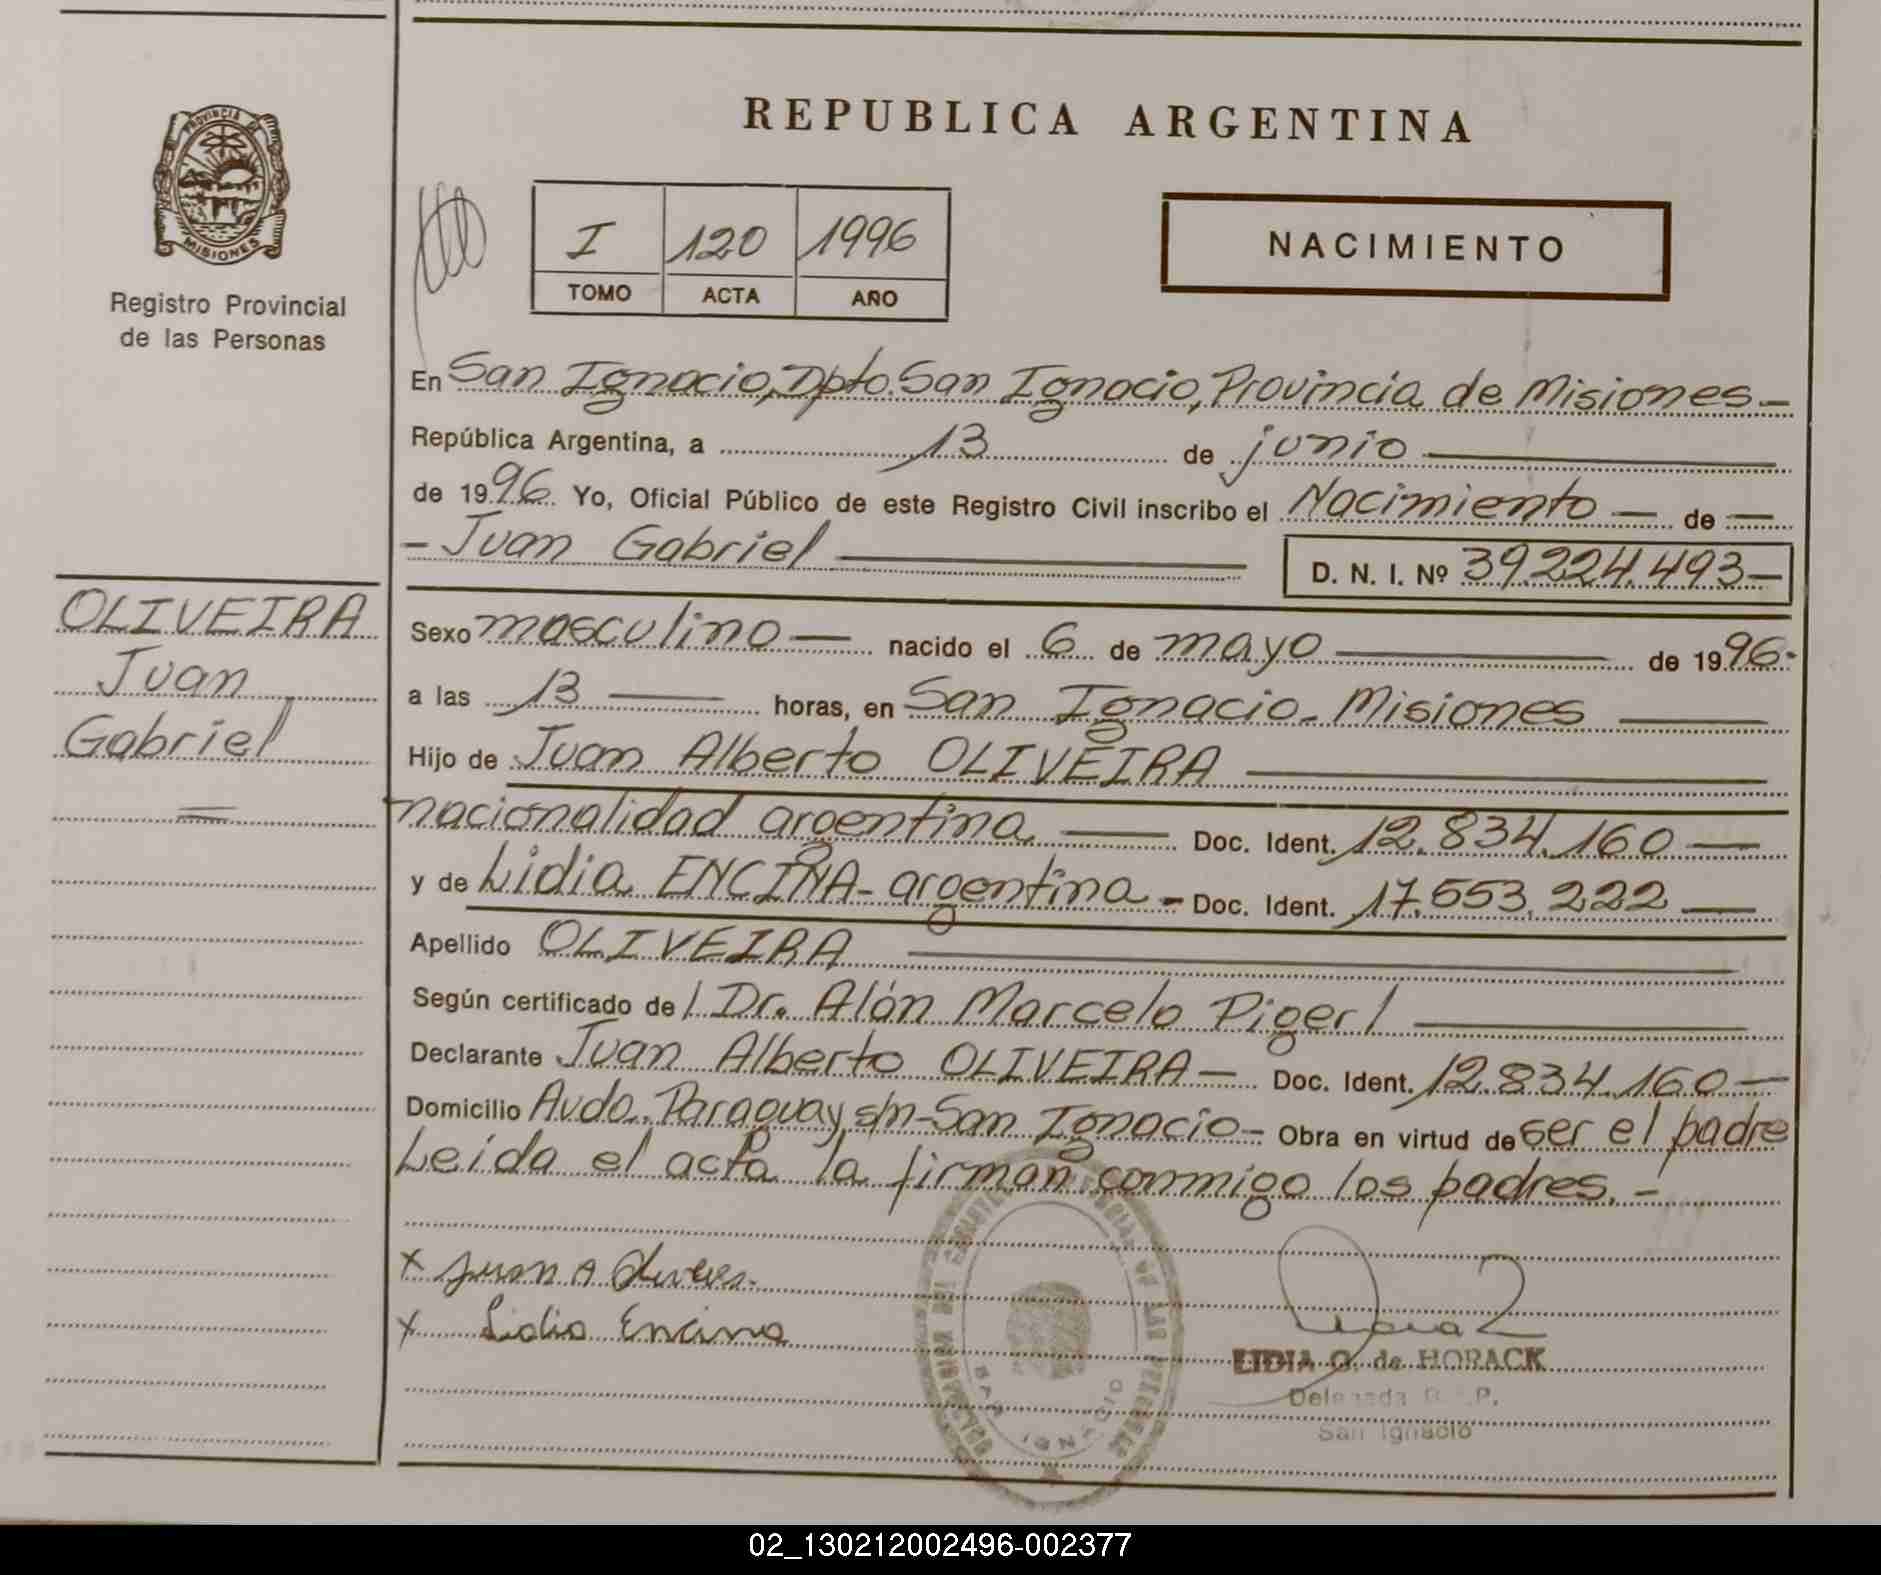 REPUBLICA ARGENTINA
PROVINCIA DE
MISIONES
Registro Provincial
de las Personas
I 120 1996
TOMO ACTA AÑO
NACIMIENTO
En San Ignacio, Dpto. San Ignacio, Provincia de Misiones—
República Argentina, a 13 de junio —
de 1996 Yo, Oficial Público de este Registro Civil inscribo el Nacimiento — de —
- Juan Gabriel — D. N. I. Nº 39.224.493—
OLIVEIRA
Juan
Gabriel
=
Sexo masculino — nacido el 6 de mayo — de 1996.-
a las 13 — horas, en San Ignacio - Misiones —
Hijo de Juan Alberto OLIVEIRA —
nacionalidad argentina — Doc. Ident. 12.834.160 —
y de Lidia ENCINA - argentina - Doc. Ident. 17.553.222 —
Apellido OLIVEIRA —
Según certificado del Dr. Alán Marcelo Pigerl —
Declarante Juan Alberto OLIVEIRA — Doc. Ident. 12.834.160 —
Domicilio Avda. Paraguay s/n - San Ignacio - Obra en virtud de ser el padre
Leída el acta la firman conmigo los padres. -
x Juan A Oliveira
x Lidia Encina
SAN IGNACIO
LIDIA G. de HORACK
Delegada R. P.
San Ignacio
02_130212002496-002377